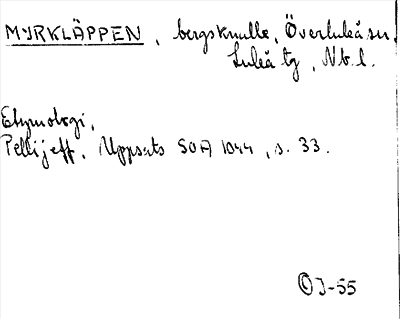 MYRKLÄPPEN, bergsknulle, Överluleå sn,
Luleå tg, Nb. l.
Etymologi,
Pellijeff, Uppsats SOA 1044, s. 33.
OJ-55